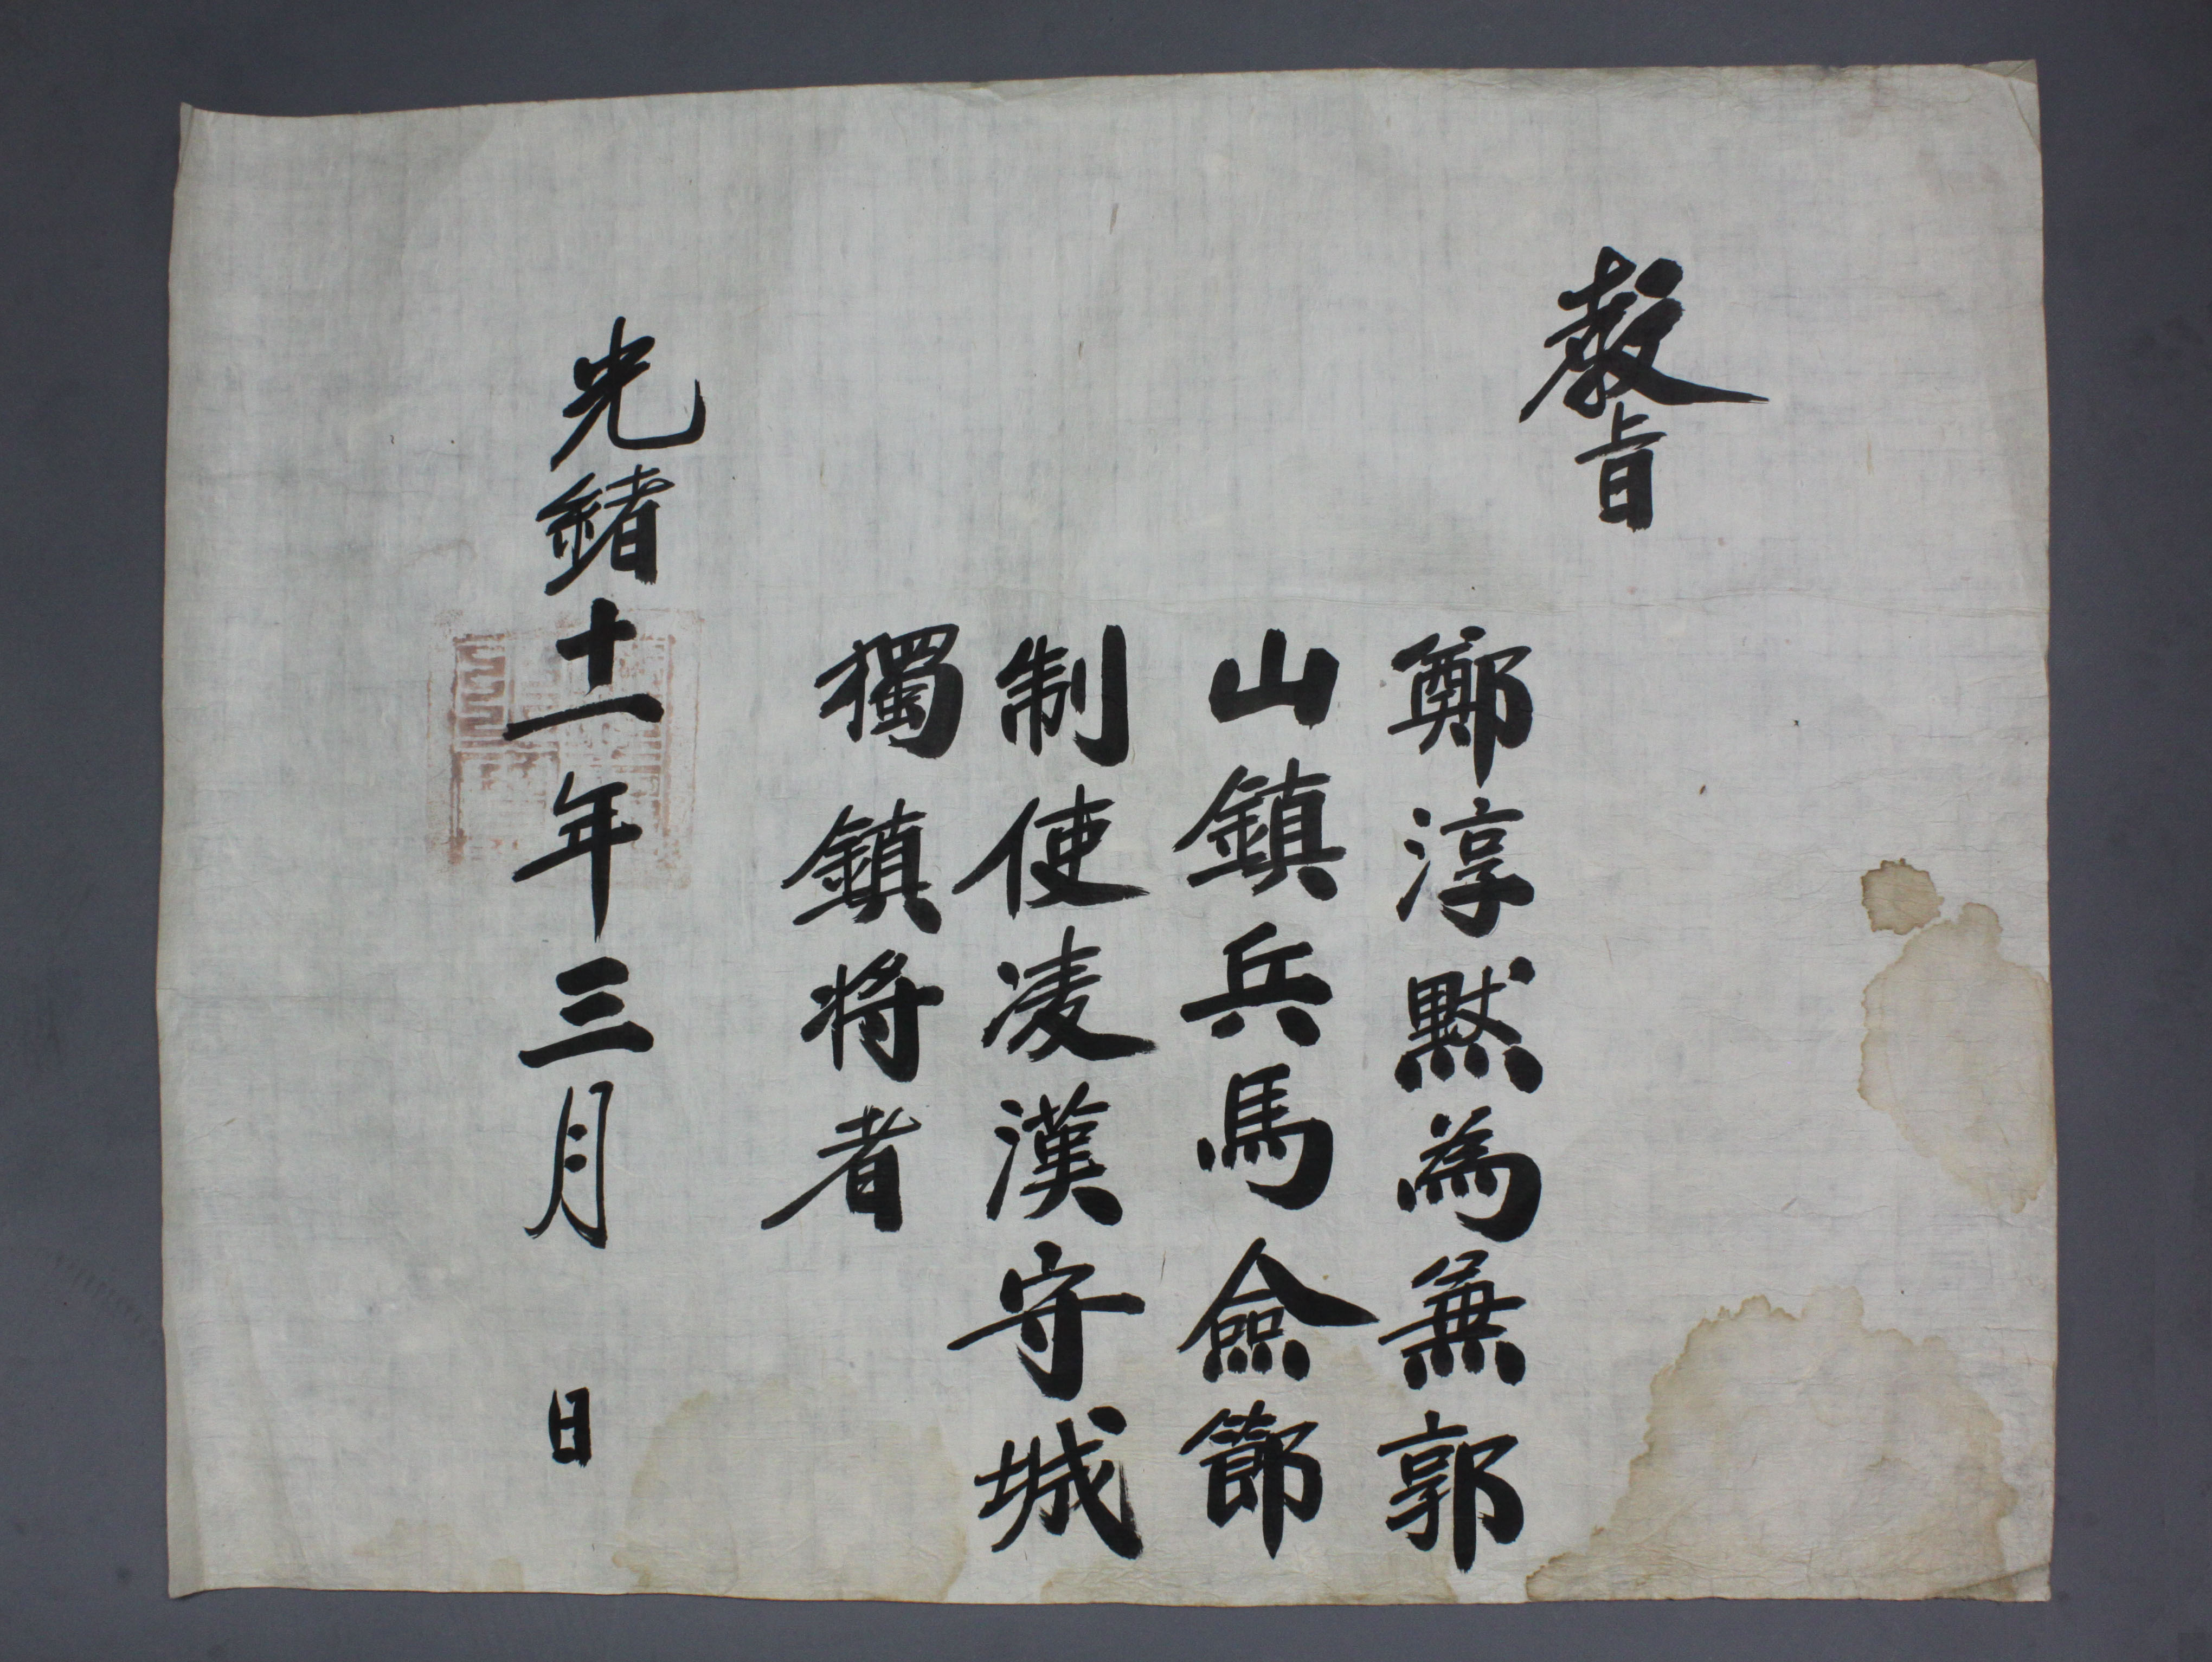 教旨
鄭淳默為兼郭
山鎮兵馬僉節
制使凌漢守城
獨鎮將者
光緒十一年三月 日